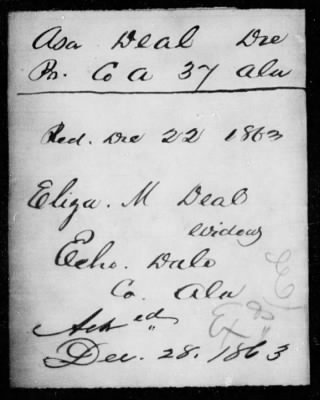 Asa Deal Dec
Pr. Co A 37 Ala
Red. Dec 22 1863
Eliza. M Deal
Widow
Echo. Dale
Co. Ala
Ack ed
Ex
Dec. 28. 1863